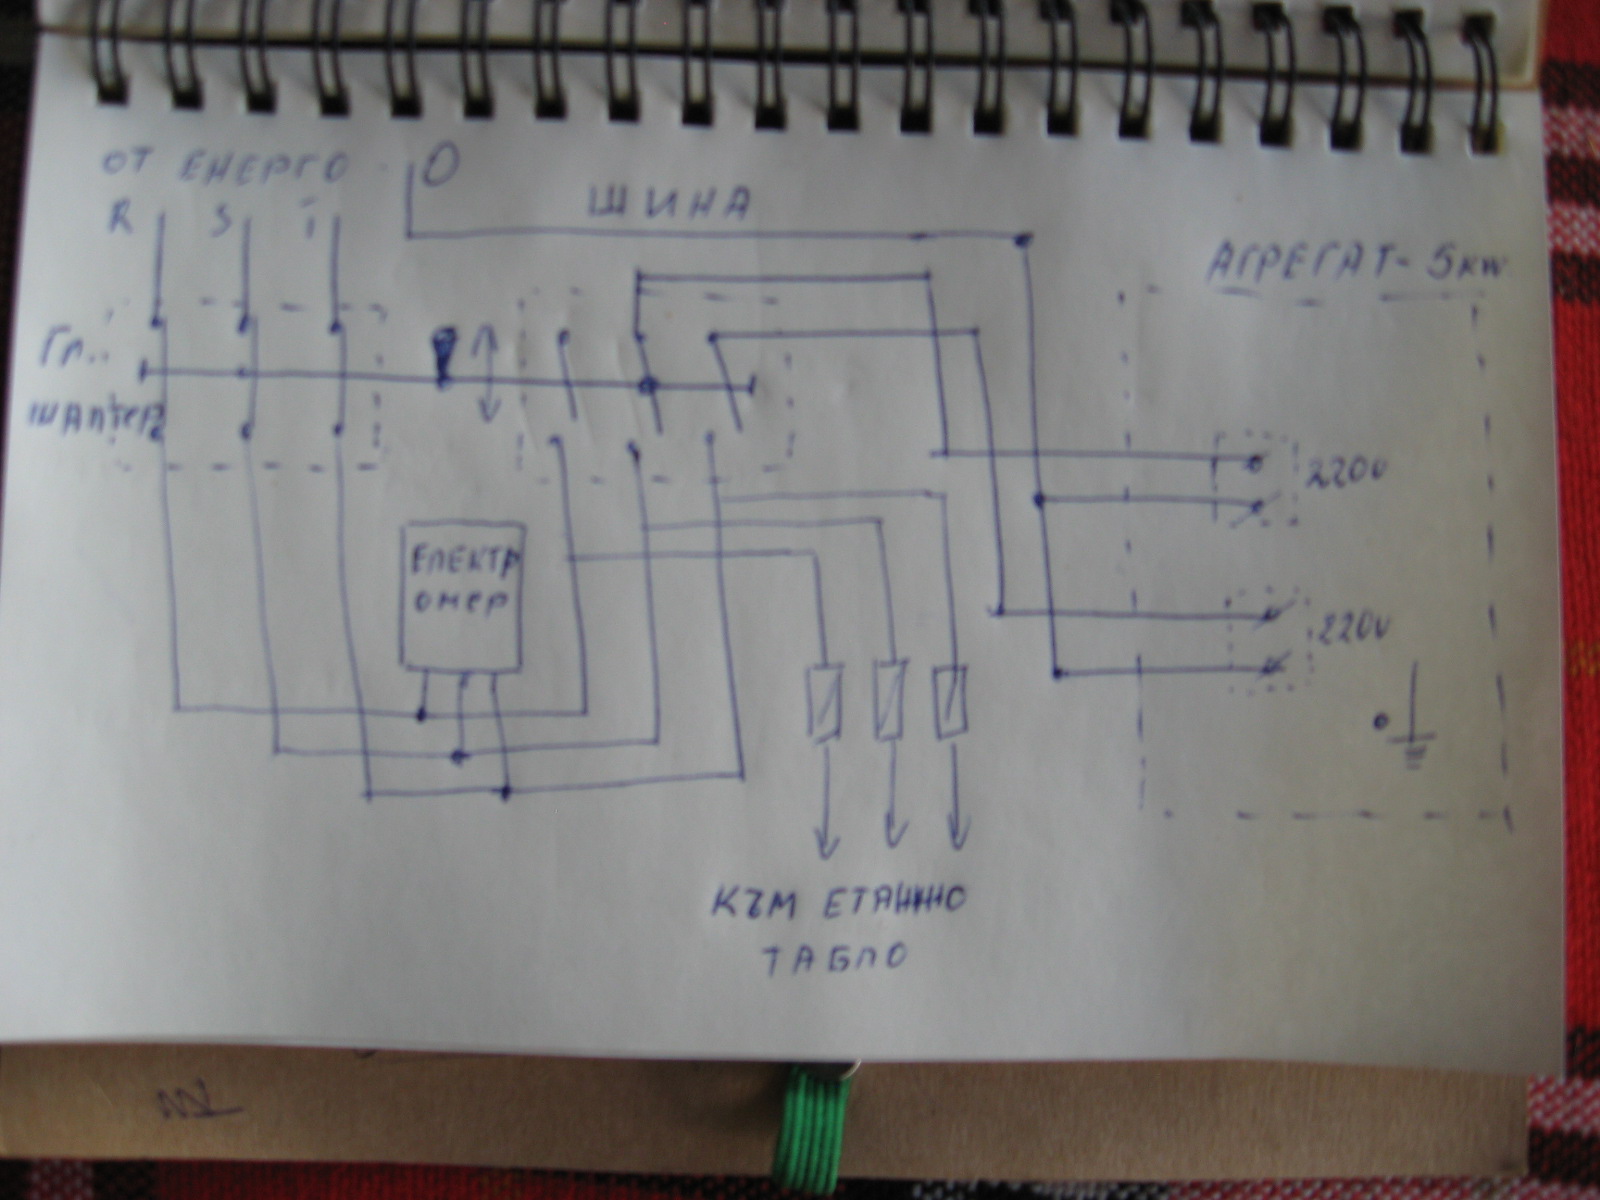 ОТ ЕНЕРГО
О
R S T
ШИНА
АГРЕГАТ - 5KW
Гл..
шалтер
220V
ЕЛЕКТР
ОМЕР
220V
КЪМ ЕТАЖНО
ТАБЛО